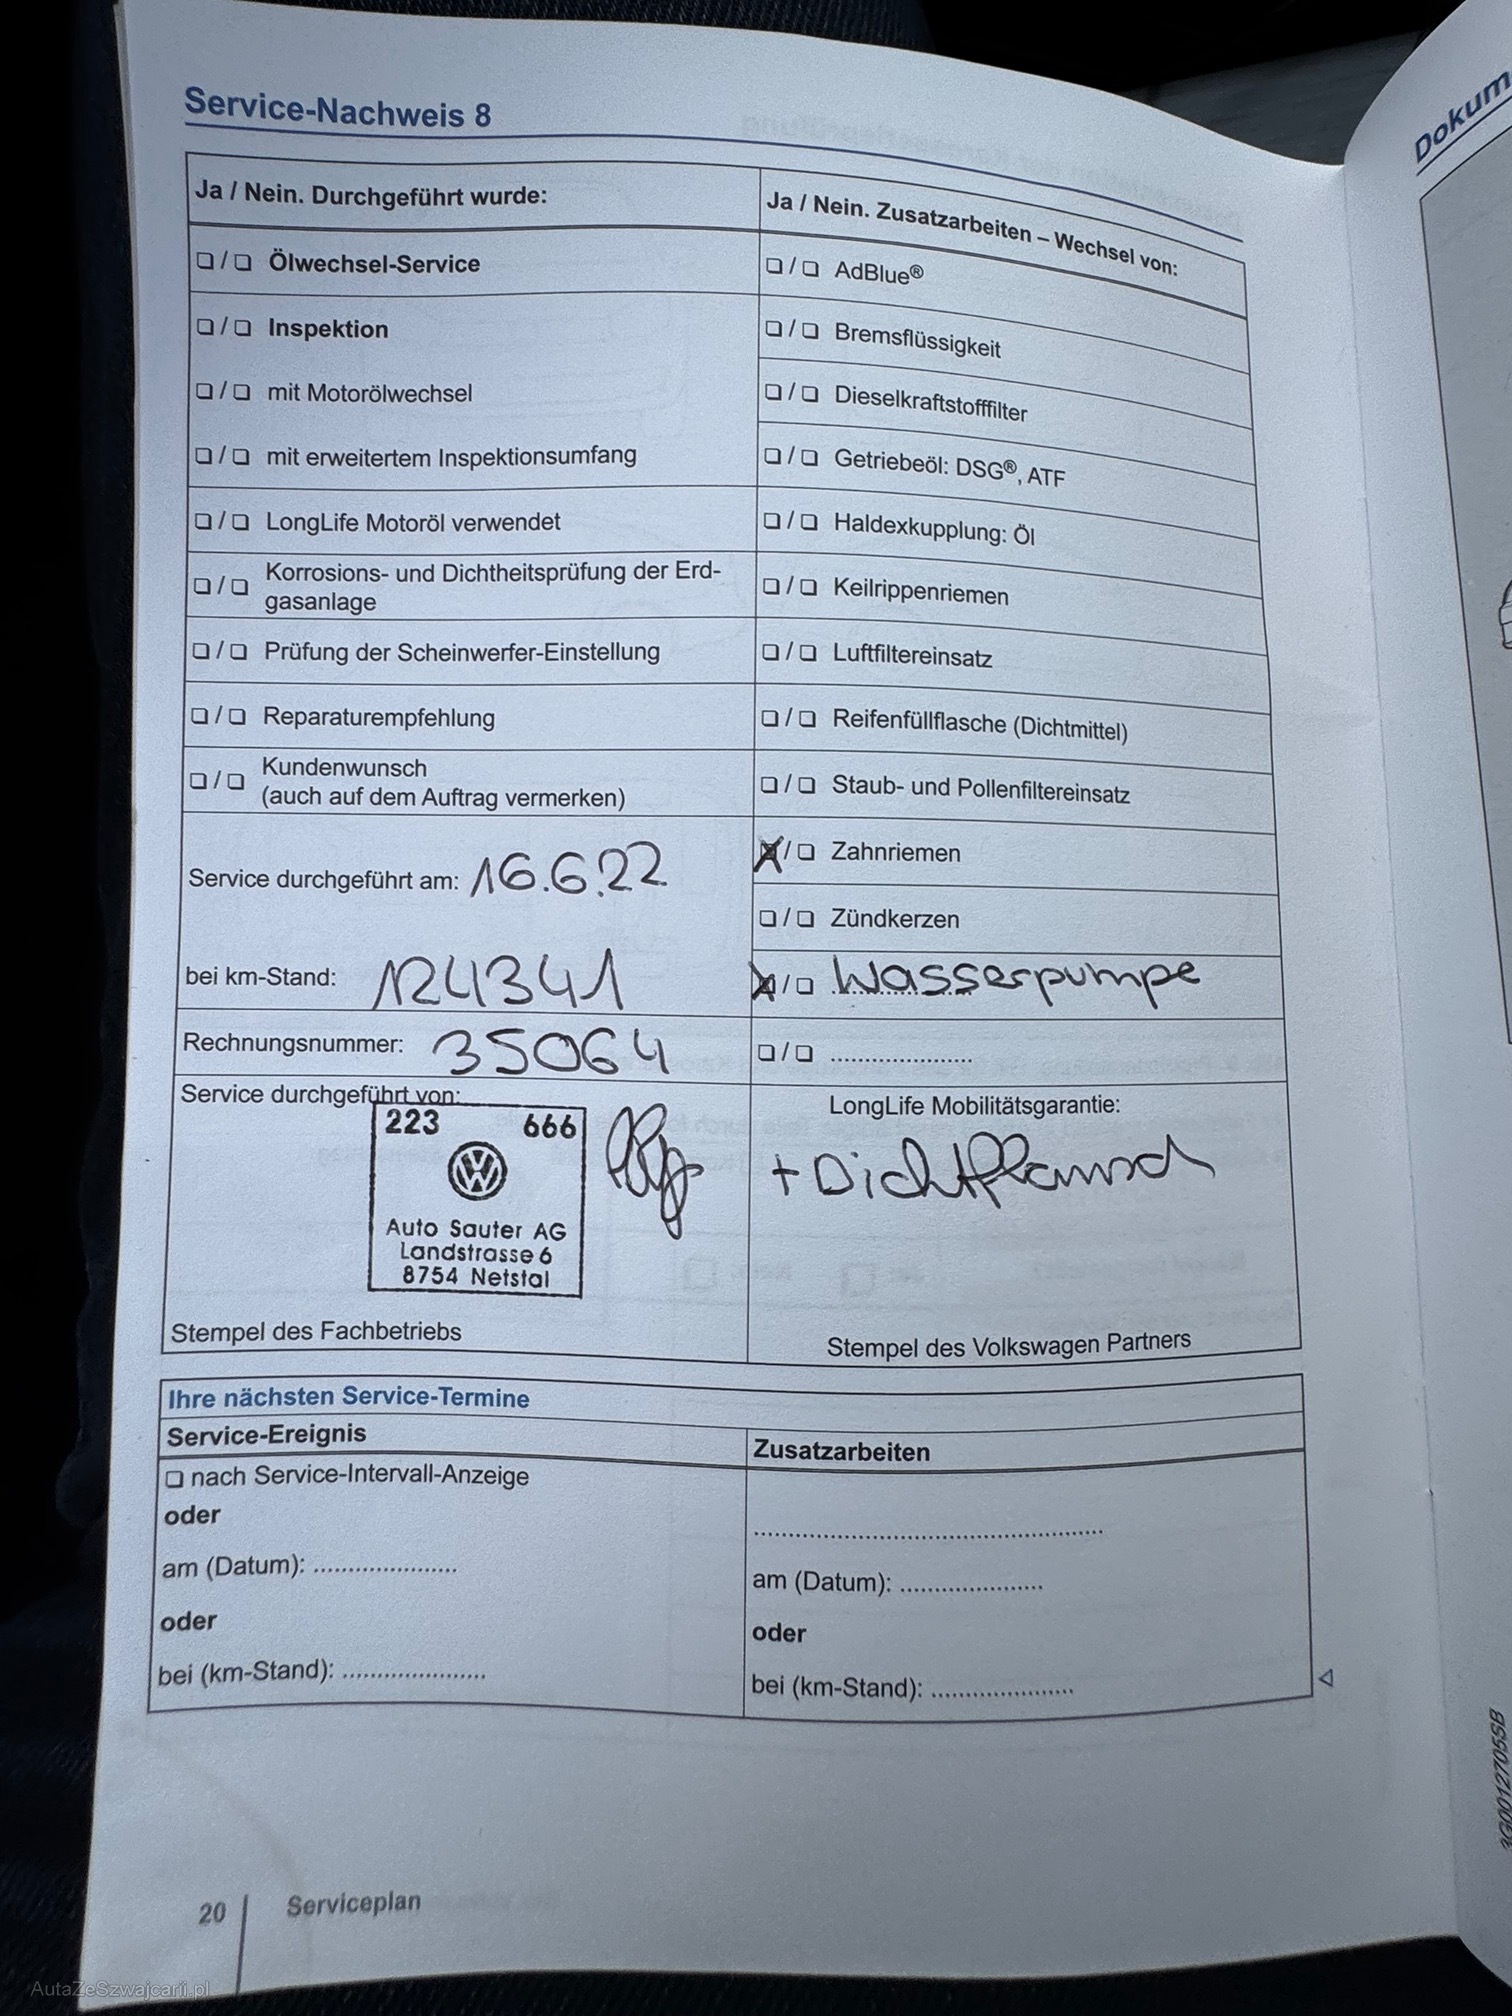 Service-Nachweis 8
Dokum
Ja / Nein. Durchgeführt wurde:
Ja / Nein. Zusatzarbeiten – Wechsel von:
❏ / ❏ Ölwechsel-Service
❏ / ❏ AdBlue®
❏ / ❏ Inspektion
❏ / ❏ Bremsflüssigkeit
❏ / ❏ mit Motorölwechsel
❏ / ❏ Dieselkraftstofffilter
❏ / ❏ mit erweitertem Inspektionsumfang
❏ / ❏ Getriebeöl: DSG®, ATF
❏ / ❏ LongLife Motoröl verwendet
❏ / ❏ Haldexkupplung: Öl
❏ / ❏ Korrosions- und Dichtheitsprüfung der Erd-
gasanlage
❏ / ❏ Keilrippenriemen
❏ / ❏ Prüfung der Scheinwerfer-Einstellung
❏ / ❏ Luftfiltereinsatz
❏ / ❏ Reparaturempfehlung
❏ / ❏ Reifenfüllflasche (Dichtmittel)
❏ / ❏ Kundenwunsch
(auch auf dem Auftrag vermerken)
❏ / ❏ Staub- und Pollenfiltereinsatz
Service durchgeführt am: 16.6.22
X / ❏ Zahnriemen
❏ / ❏ Zündkerzen
bei km-Stand: 124341
X / ❏ Wasserpumpe
Rechnungsnummer: 35064
❏ / ❏ .....................
Service durchgeführt von:
223 666
Auto Sauter AG
Landstrasse 6
8754 Netstal
Stempel des Fachbetriebs
LongLife Mobilitätsgarantie:
+ Dichtflansch
Stempel des Volkswagen Partners
Ihre nächsten Service-Termine
Service-Ereignis
Zusatzarbeiten
❏ nach Service-Intervall-Anzeige
oder
am (Datum): .....................
oder
bei (km-Stand): .....................
....................................................
am (Datum): .....................
oder
bei (km-Stand): .....................
20 Serviceplan
3G0012705SB
AutaZeSzwajcarii.pl